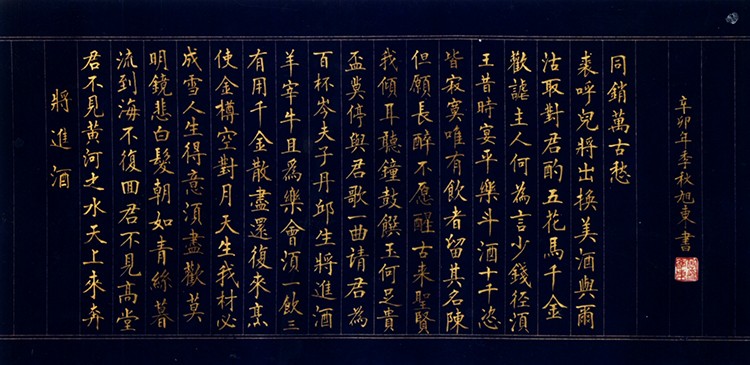 將進酒
君不見黃河之水天上來奔
流到海不復囬君不見高堂
明鏡悲白髮朝如青絲暮
成雪人生得意須盡歡莫
使金樽空對月天生我材必
有用千金散盡還復來烹
羊宰牛且爲樂會須一飲三
百杯岑夫子丹邱生將進酒
盃莫停與君歌一曲請君為
我傾耳聽鐘鼓饌玉何足貴
但願長醉不愿醒古来聖賢
皆寂寞唯有飲者留其名陳
王昔時宴平樂斗酒十千恣
歡謔主人何為言少錢径須
沽取對君酌五花馬千金
裘呼兒將出換美酒與爾
同銷萬古愁
辛卯年季秋旭東書